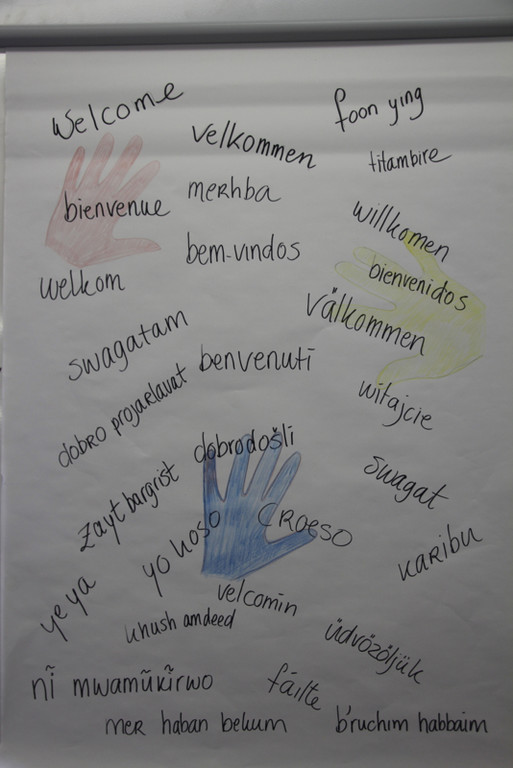 Welcome
foon ying
velkommen
titambire
merhba
bienvenue
willkomen
bem-vindos
bienvenidos
welkom
Välkommen
swagatam
benvenuti
witajcie
dobro projarlavat
dobrodošli
swagat
zayt bargrist
Croeso
yo koso
karibu
ye ya
velcomin
khush amdeed
üdvözöljük
nĩ mwamũkĩrwo
fáilte
mer haban bekum
b'ruchim habbaim